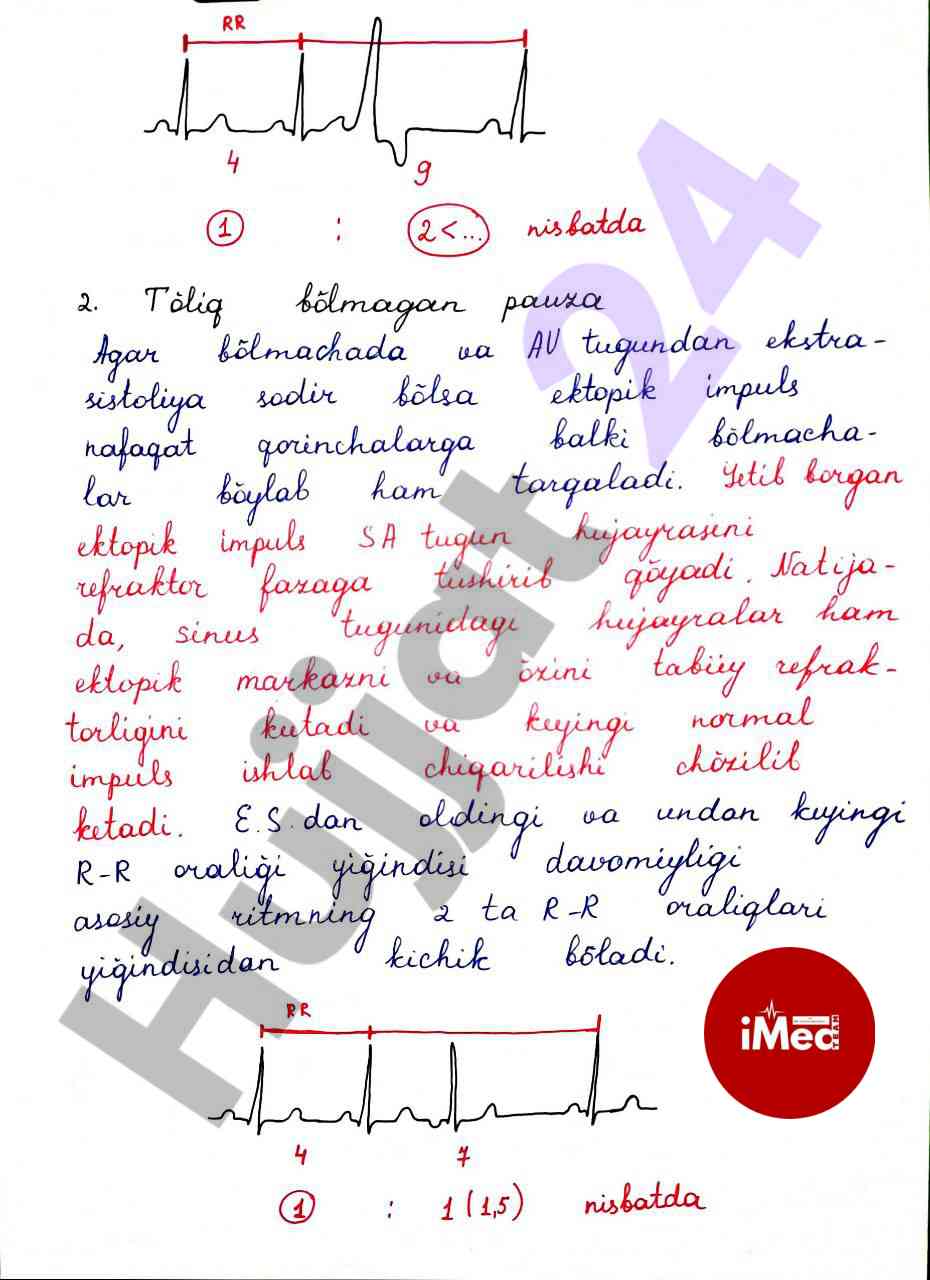 RR
4 9
1 : 2<... nisbatda
2. Tõliq bõlmagan pauza
Agar bõlmachada va AV tugundan ekstra-
sistoliya sodir bõlsa ektopik impuls
nafaqat qorinchalarga balki bõlmacha-
lar bõylab ham tarqaladi. Yetib borgan
ektopik impuls SA tugun hujayrasini
refraktor fazaga tushirib qõyadi. Natija-
da, sinus tugunidagi hujayralar ham
ektopik markazni va õzini tabiiy refrak-
torligini kutadi va keyingi normal
impuls ishlab chiqarilishi chõzilib
ketadi. E.S.dan oldingi va undan keyingi
R-R oraliği yiğindisi davomiyligi
asosiy ritmning 2 ta R-R oraliqlari
yiğindisidan kichik bõladi.
RR
4 7
1 : 1(1,5) nisbatda
Hujjat 24
iMed
TEAM